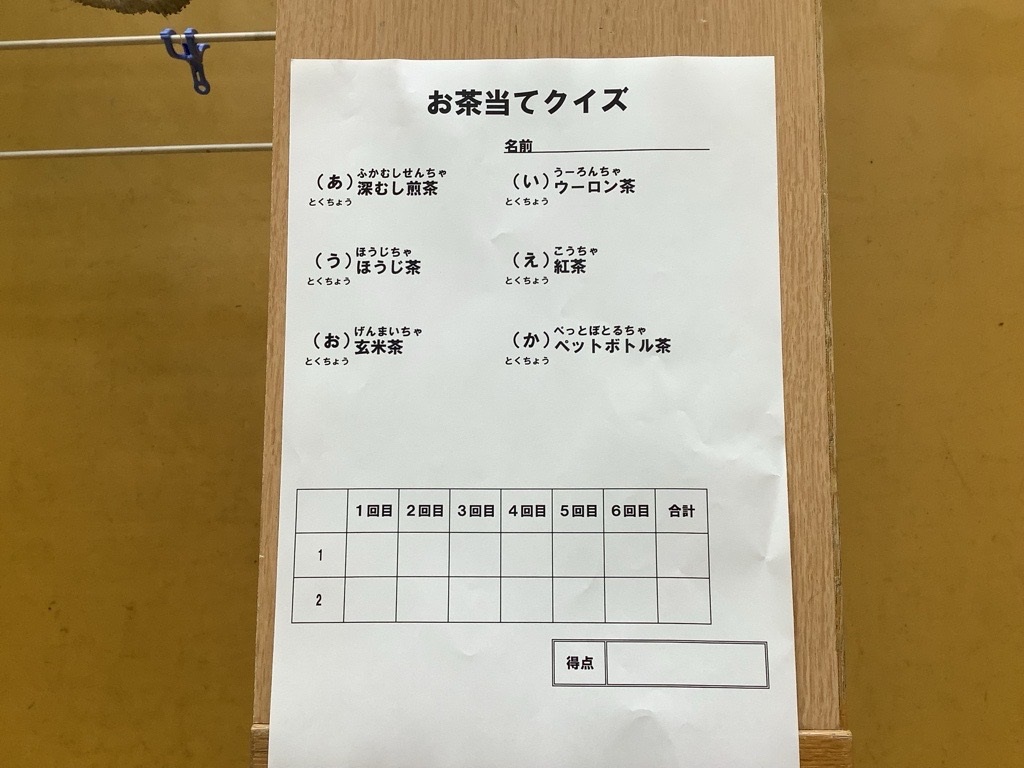 お茶当てクイズ
名前
ふかむしせんちゃ
(あ)深むし煎茶
とくちょう
うーろんちゃ
(い)ウーロン茶
とくちょう
ほうじちゃ
(う)ほうじ茶
とくちょう
こうちゃ
(え)紅茶
とくちょう
げんまいちゃ
(お)玄米茶
とくちょう
ぺっとぼとるちゃ
(か)ペットボトル茶
とくちょう
1回目 2回目 3回目 4回目 5回目 6回目 合計
1
2
得点